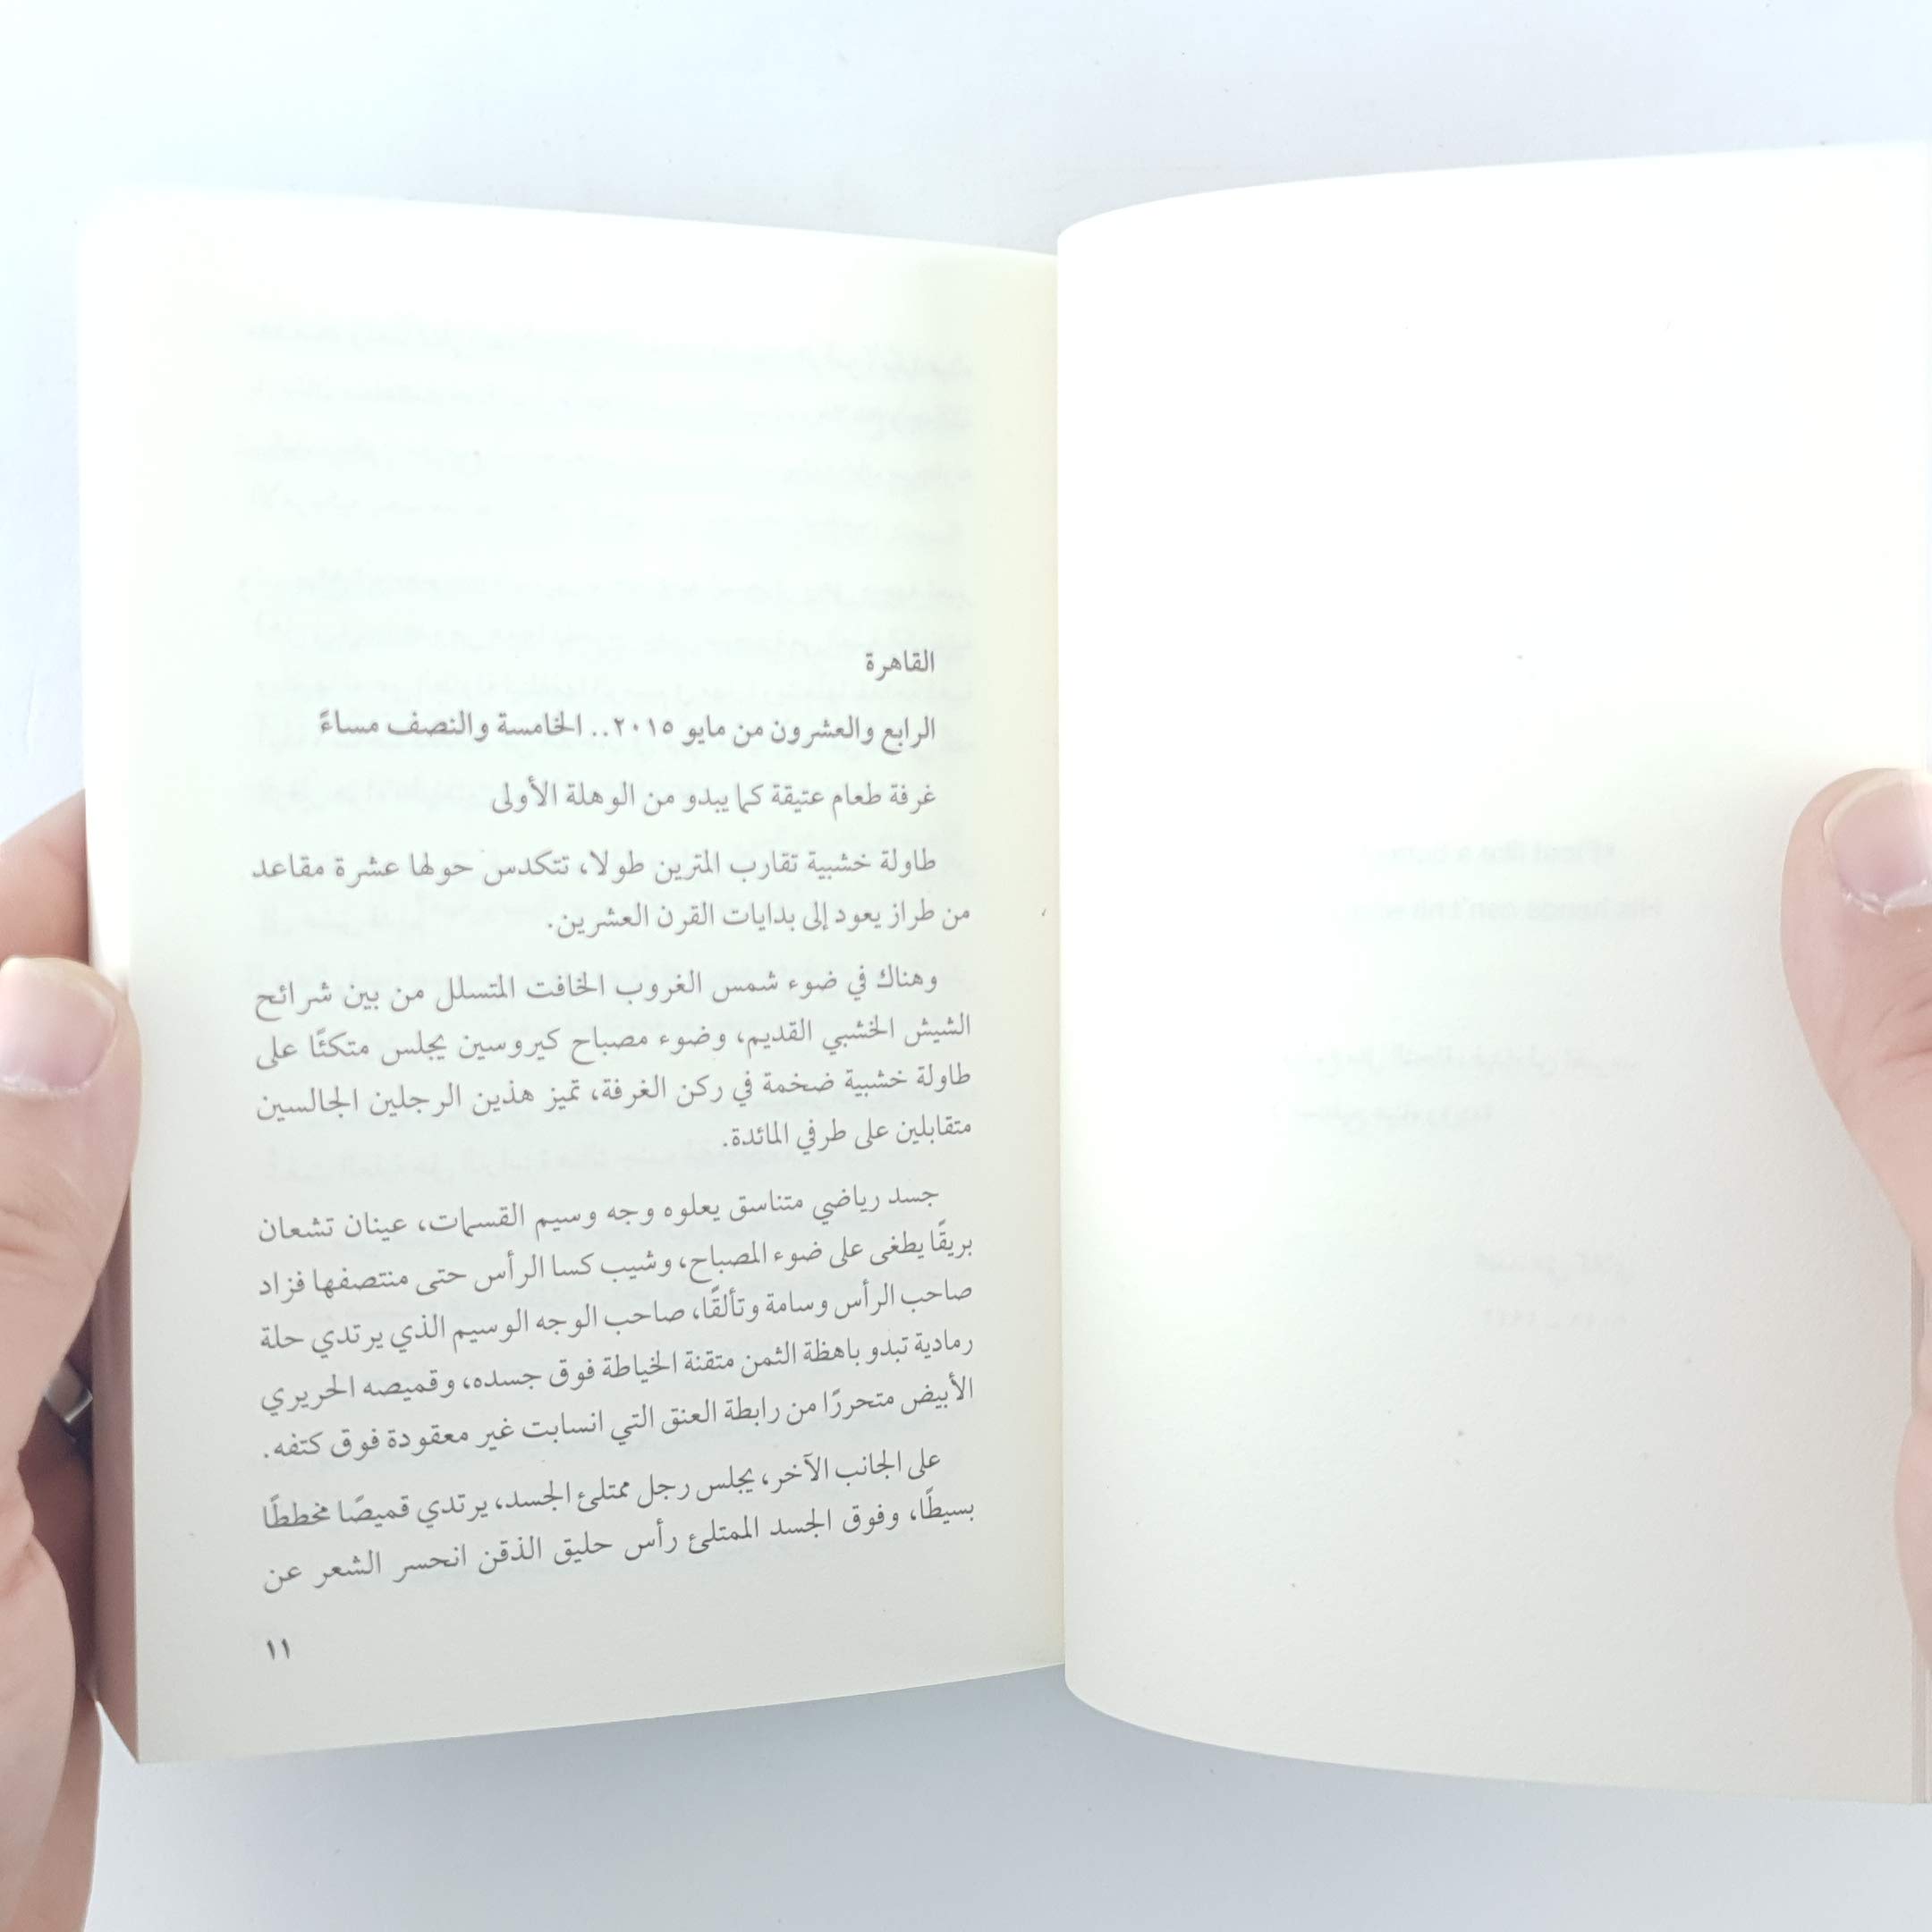 القاهرة
الرابع والعشرون من مايو ٢٠١٥.. الخامسة والنصف مساءً
غرفة طعام عتيقة كما يبدو من الوهلة الأولى
طاولة خشبية تقارب المترين طولا، تتكدس حولها عشرة مقاعد
من طراز يعود إلى بدايات القرن العشرين.
وهناك في ضوء شمس الغروب الخافت المتسلل من بين شرائح
الشيش الخشبي القديم، وضوء مصباح كيروسين يجلس متكئًا على
طاولة خشبية ضخمة في ركن الغرفة، تميز هذين الرجلين الجالسين
متقابلين على طرفي المائدة.
جسد رياضي متناسق يعلوه وجه وسيم القسمات، عينان تشعان
بريقًا يطغى على ضوء المصباح، وشيب كسا الرأس حتى منتصفها فزاد
صاحب الرأس وسامة وتألقًا، صاحب الوجه الوسيم الذي يرتدي حلة
رمادية تبدو باهظة الثمن متقنة الخياطة فوق جسده، وقميصه الحريري
الأبيض متحررًا من رابطة العنق التي انسابت غير معقودة فوق كتفه.
على الجانب الآخر، يجلس رجل ممتلئ الجسد، يرتدي قميصًا مخططًا
بسيطًا، وفوق الجسد الممتلئ رأس حليق الذقن انحسر الشعر عن
١١